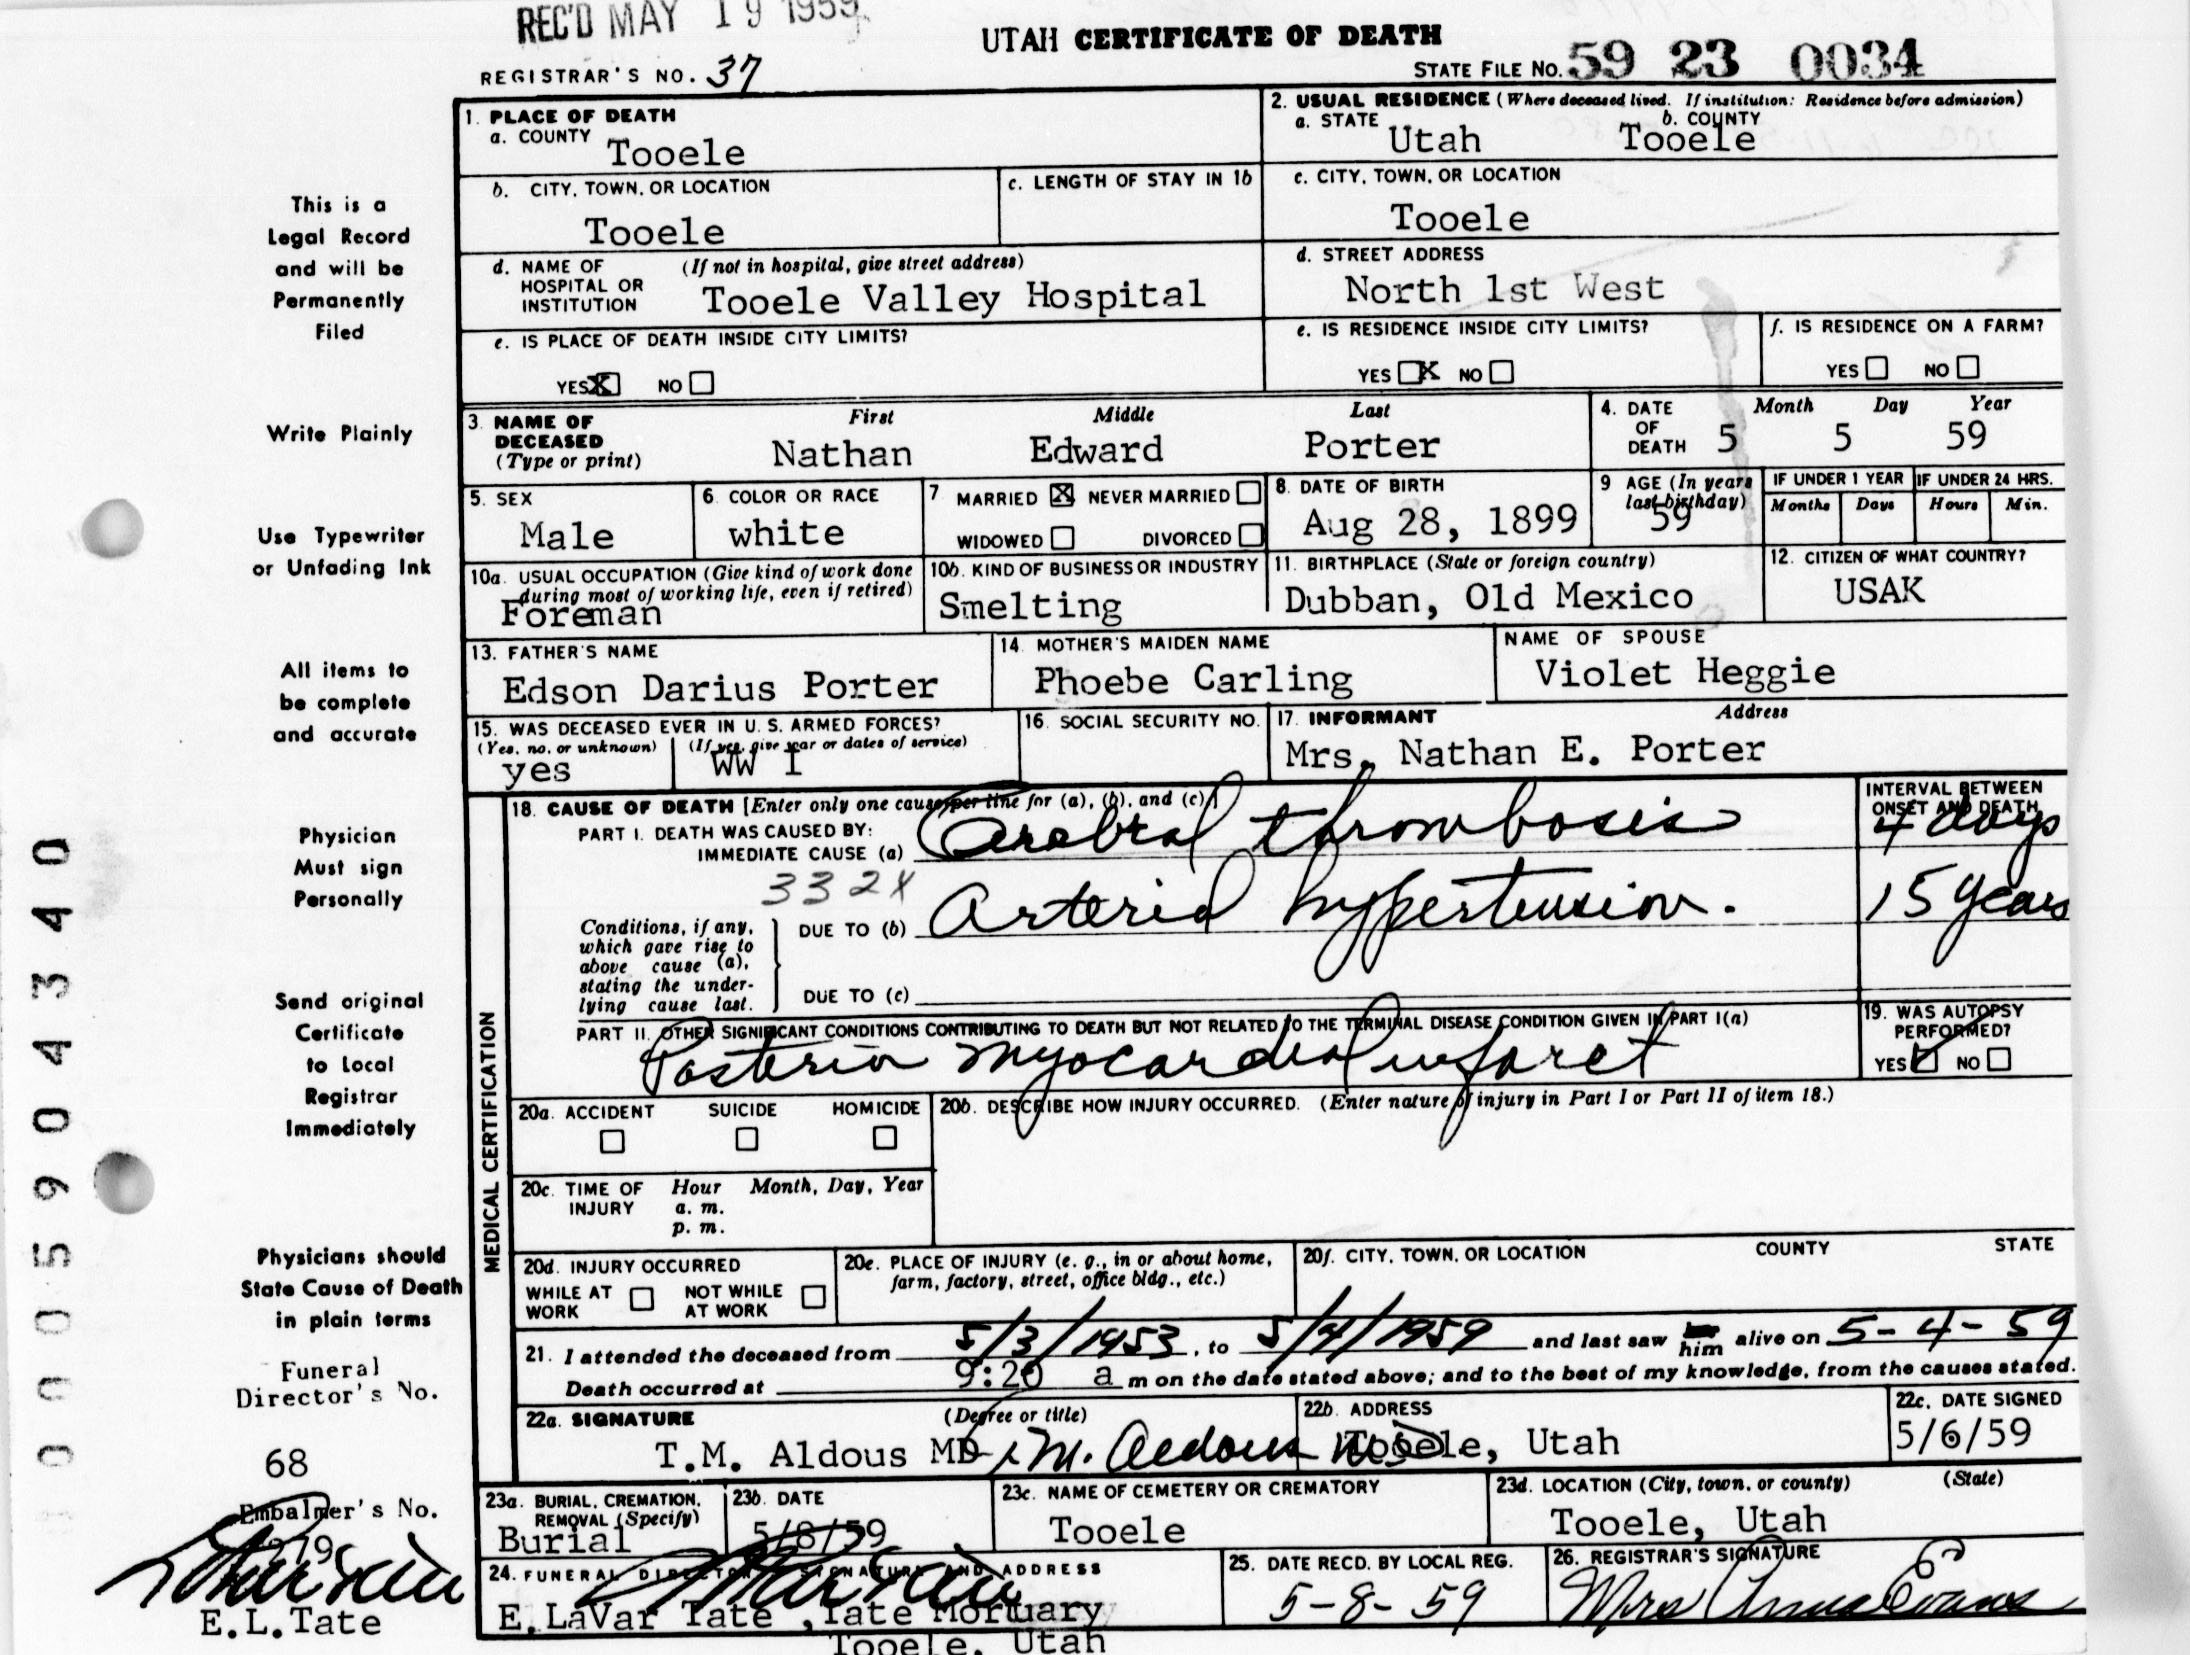 REC'D MAY 19 1959
UTAH CERTIFICATE OF DEATH
REGISTRAR'S NO. 37
STATE FILE No. 59 23 0034
1. PLACE OF DEATH
a. COUNTY Tooele
2. USUAL RESIDENCE (Where deceased lived. If institution: Residence before admission)
a. STATE Utah b. COUNTY Tooele
b. CITY, TOWN, OR LOCATION Tooele
c. LENGTH OF STAY IN 1b
c. CITY, TOWN, OR LOCATION Tooele
d. NAME OF HOSPITAL OR INSTITUTION (If not in hospital, give street address) Tooele Valley Hospital
d. STREET ADDRESS North 1st West
e. IS PLACE OF DEATH INSIDE CITY LIMITS?
YES X NO
e. IS RESIDENCE INSIDE CITY LIMITS?
YES X NO
f. IS RESIDENCE ON A FARM?
YES NO
3. NAME OF DECEASED (Type or print)
First Middle Last
Nathan Edward Porter
4. DATE OF DEATH Month Day Year
5 5 59
5. SEX Male
6. COLOR OR RACE white
7. MARRIED X NEVER MARRIED
WIDOWED DIVORCED
8. DATE OF BIRTH Aug 28, 1899
9 AGE (In years last birthday) 59
IF UNDER 1 YEAR Months Days
IF UNDER 24 HRS. Hours Min.
10a. USUAL OCCUPATION (Give kind of work done during most of working life, even if retired) Foreman
10b. KIND OF BUSINESS OR INDUSTRY Smelting
11. BIRTHPLACE (State or foreign country) Dubban, Old Mexico
12. CITIZEN OF WHAT COUNTRY? USAK
13. FATHER'S NAME Edson Darius Porter
14. MOTHER'S MAIDEN NAME Phoebe Carling
NAME OF SPOUSE Violet Heggie
15. WAS DECEASED EVER IN U. S. ARMED FORCES?
(Yes, no, or unknown) yes (If yes, give war or dates of service) WW I
16. SOCIAL SECURITY NO.
17. INFORMANT Address
Mrs. Nathan E. Porter
MEDICAL CERTIFICATION
18. CAUSE OF DEATH [Enter only one cause per line for (a), (b), and (c)]
INTERVAL BETWEEN ONSET AND DEATH
PART I. DEATH WAS CAUSED BY:
IMMEDIATE CAUSE (a) Cerebral thrombosis 4 days
332X
Conditions, if any, which gave rise to above cause (a), stating the underlying cause last.
DUE TO (b) Arterial hypertension. 15 years
DUE TO (c)
PART II. OTHER SIGNIFICANT CONDITIONS CONTRIBUTING TO DEATH BUT NOT RELATED TO THE TERMINAL DISEASE CONDITION GIVEN IN PART I(a)
Posterior myocardial infarct
19. WAS AUTOPSY PERFORMED?
YES NO
20a. ACCIDENT SUICIDE HOMICIDE
20b. DESCRIBE HOW INJURY OCCURRED. (Enter nature of injury in Part I or Part II of item 18.)
20c. TIME OF INJURY Hour Month, Day, Year
a. m.
p. m.
20d. INJURY OCCURRED
WHILE AT WORK NOT WHILE AT WORK
20e. PLACE OF INJURY (e. g., in or about home, farm, factory, street, office bldg., etc.)
20f. CITY, TOWN, OR LOCATION COUNTY STATE
21. I attended the deceased from 5/3/1953, to 5/4/1959 and last saw him alive on 5-4-59
Death occurred at 9:20 a m on the date stated above; and to the best of my knowledge, from the causes stated.
22a. SIGNATURE (Degree or title)
T.M. Aldous MD T.M. Aldous MD
22b. ADDRESS Tooele, Utah
22c. DATE SIGNED 5/6/59
23a. BURIAL, CREMATION, REMOVAL (Specify) Burial
23b. DATE 5/8/59
23c. NAME OF CEMETERY OR CREMATORY Tooele
23d. LOCATION (City, town, or county) (State)
Tooele, Utah
24. FUNERAL DIRECTOR'S SIGNATURE AND ADDRESS
E. LaVar Tate, Tate Mortuary
Tooele, Utah
25. DATE RECD. BY LOCAL REG. 5-8-59
26. REGISTRAR'S SIGNATURE Mrs Evans
This is a
Legal Record
and will be
Permanently
Filed
Write Plainly
Use Typewriter
or Unfading Ink
All items to
be complete
and accurate
Physician
Must sign
Personally
Send original
Certificate
to Local
Registrar
Immediately
Physicians should
State Cause of Death
in plain terms
Funeral
Director's No.
68
Embalmer's No.
E.L.Tate
000590434 0